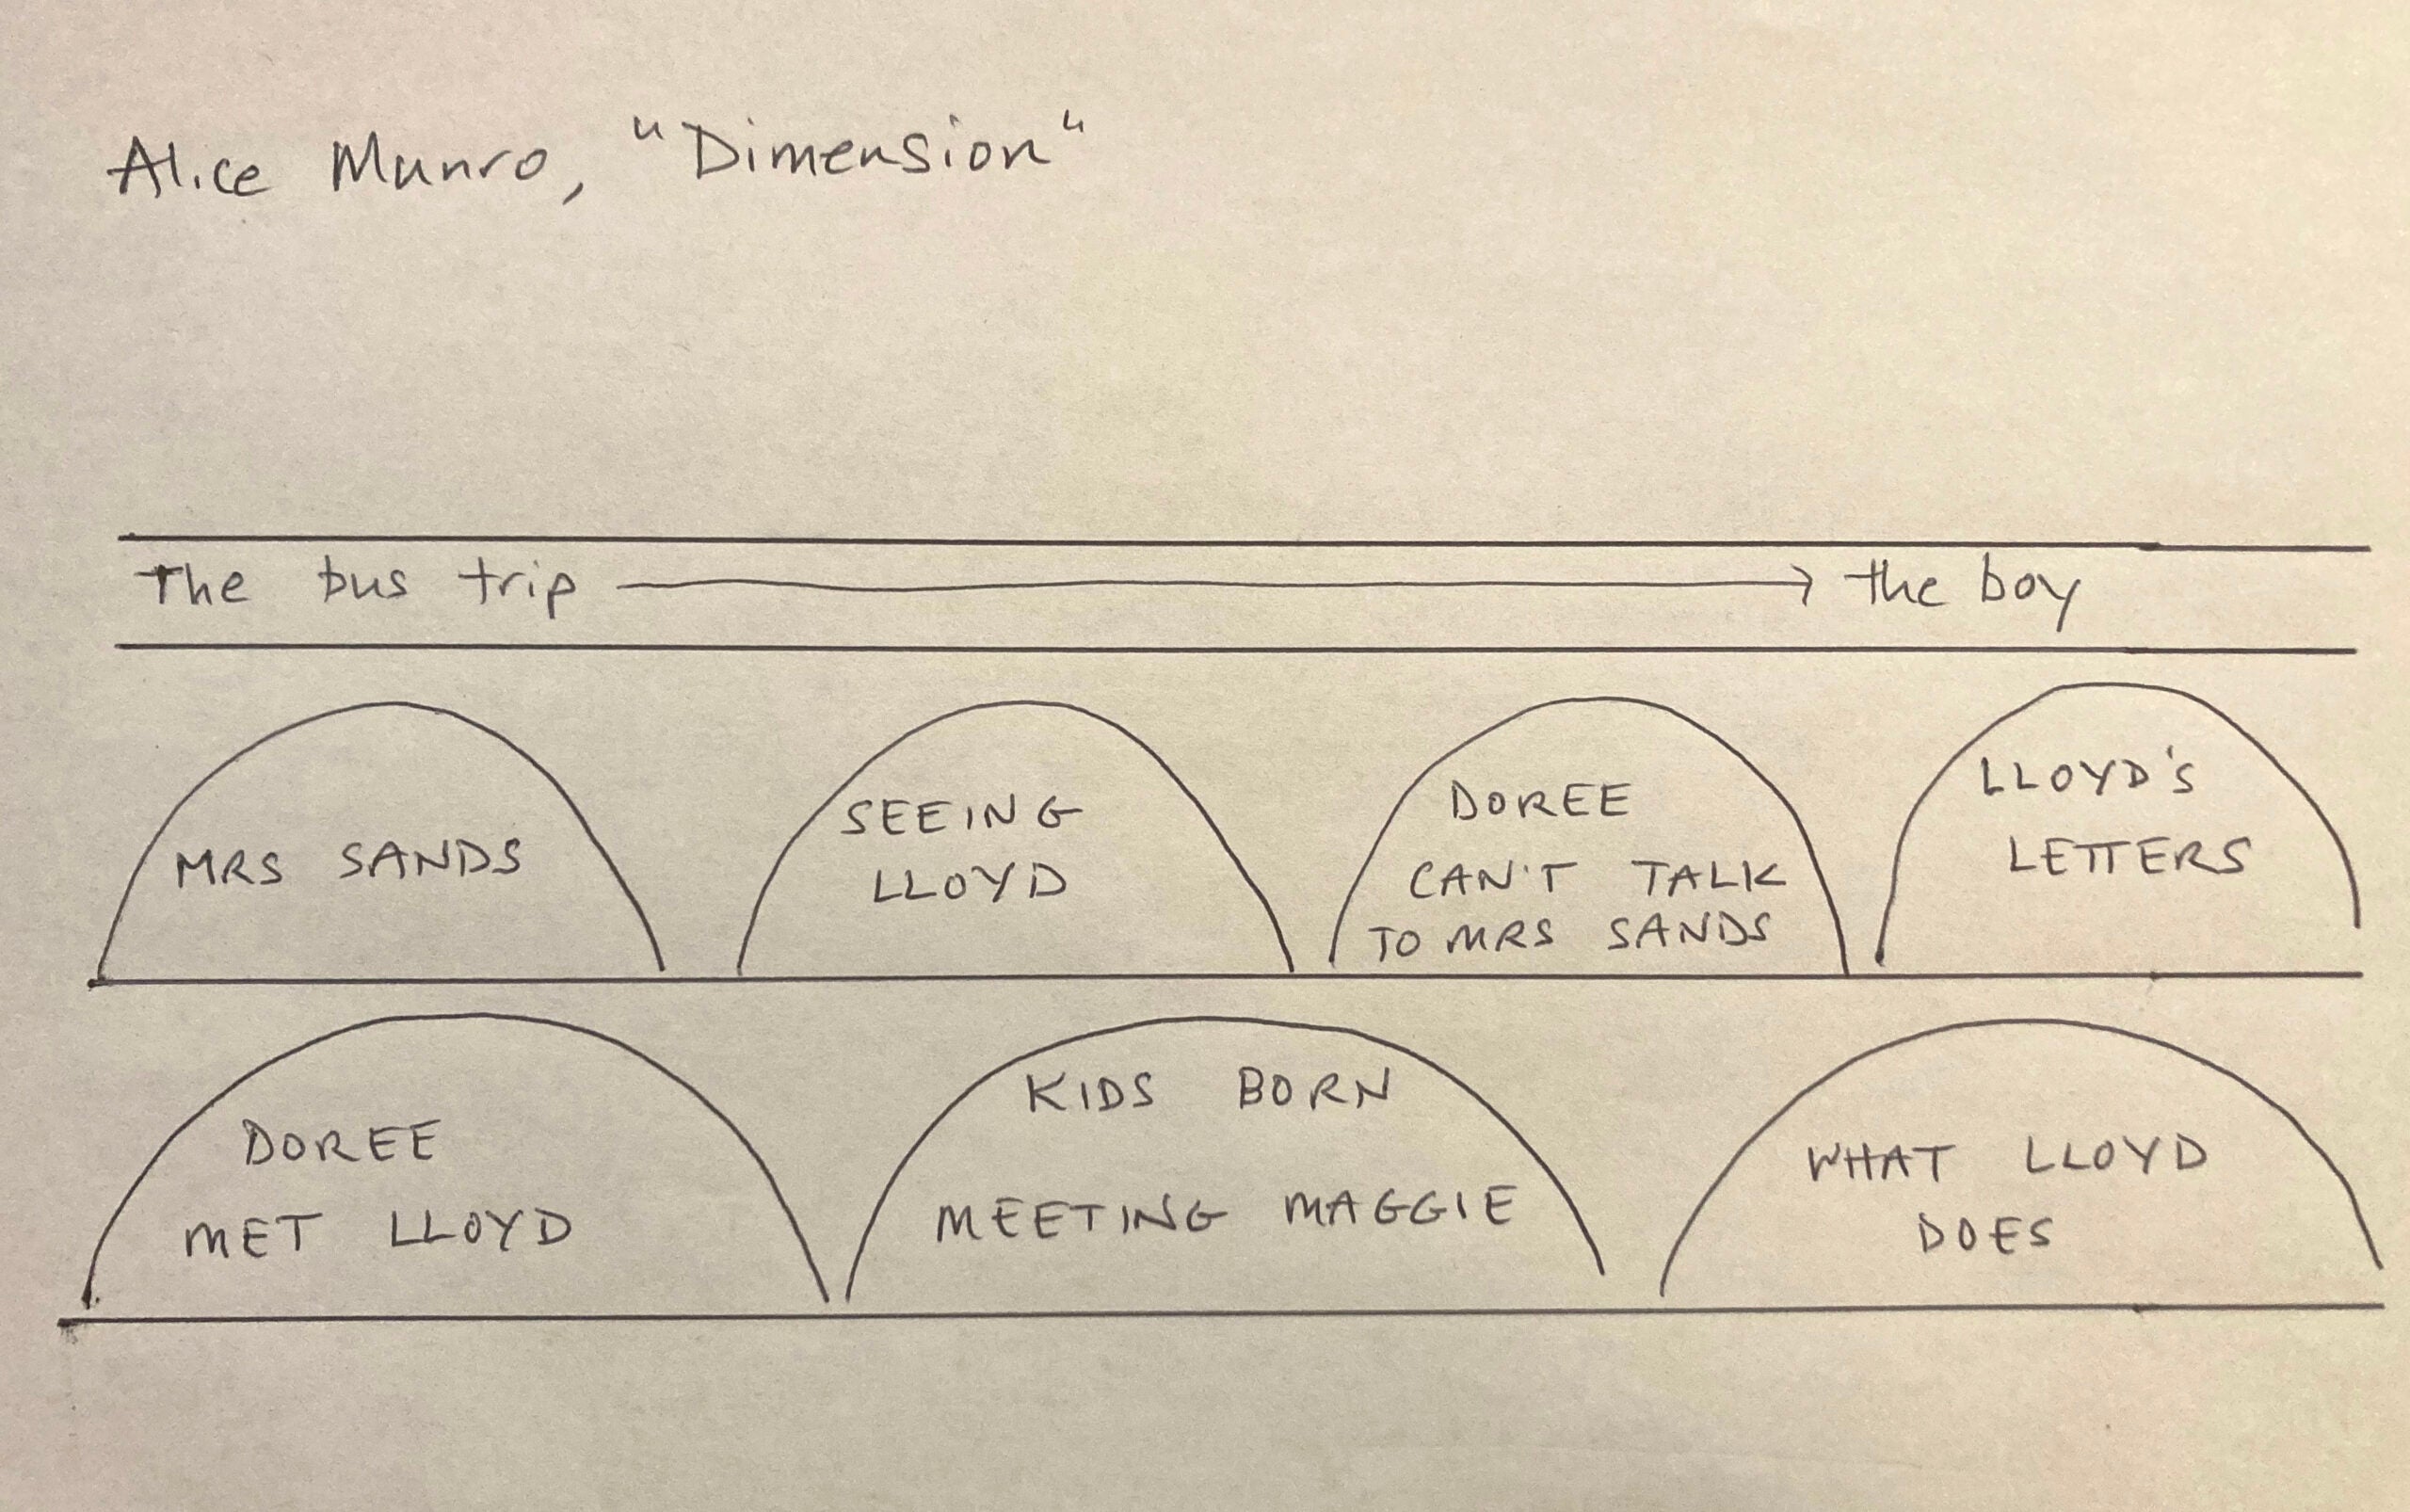 Alice Munro, "Dimension"
The bus trip → the boy
MRS SANDS
SEEING
LLOYD
DOREE
CAN'T TALK
TO MRS SANDS
LLOYD'S
LETTERS
DOREE
MET LLOYD
KIDS BORN
MEETING MAGGIE
WHAT LLOYD
DOES